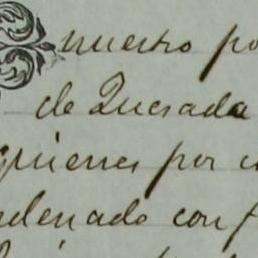 nuestro po
de Quesada
quienes por c
denado con f